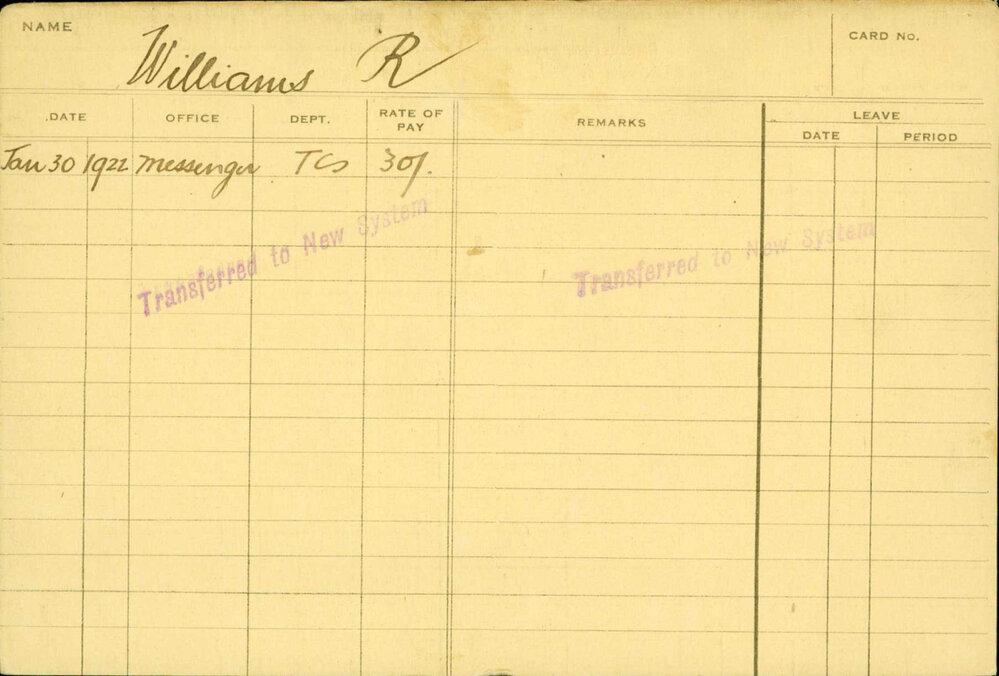 NAME
Williams R
CARD NO.
DATE OFFICE DEPT. RATE OF PAY REMARKS LEAVE
DATE PERIOD
Jan 30 1922 Messenger TCS 30/.
Transferred to New System
Transferred to New System